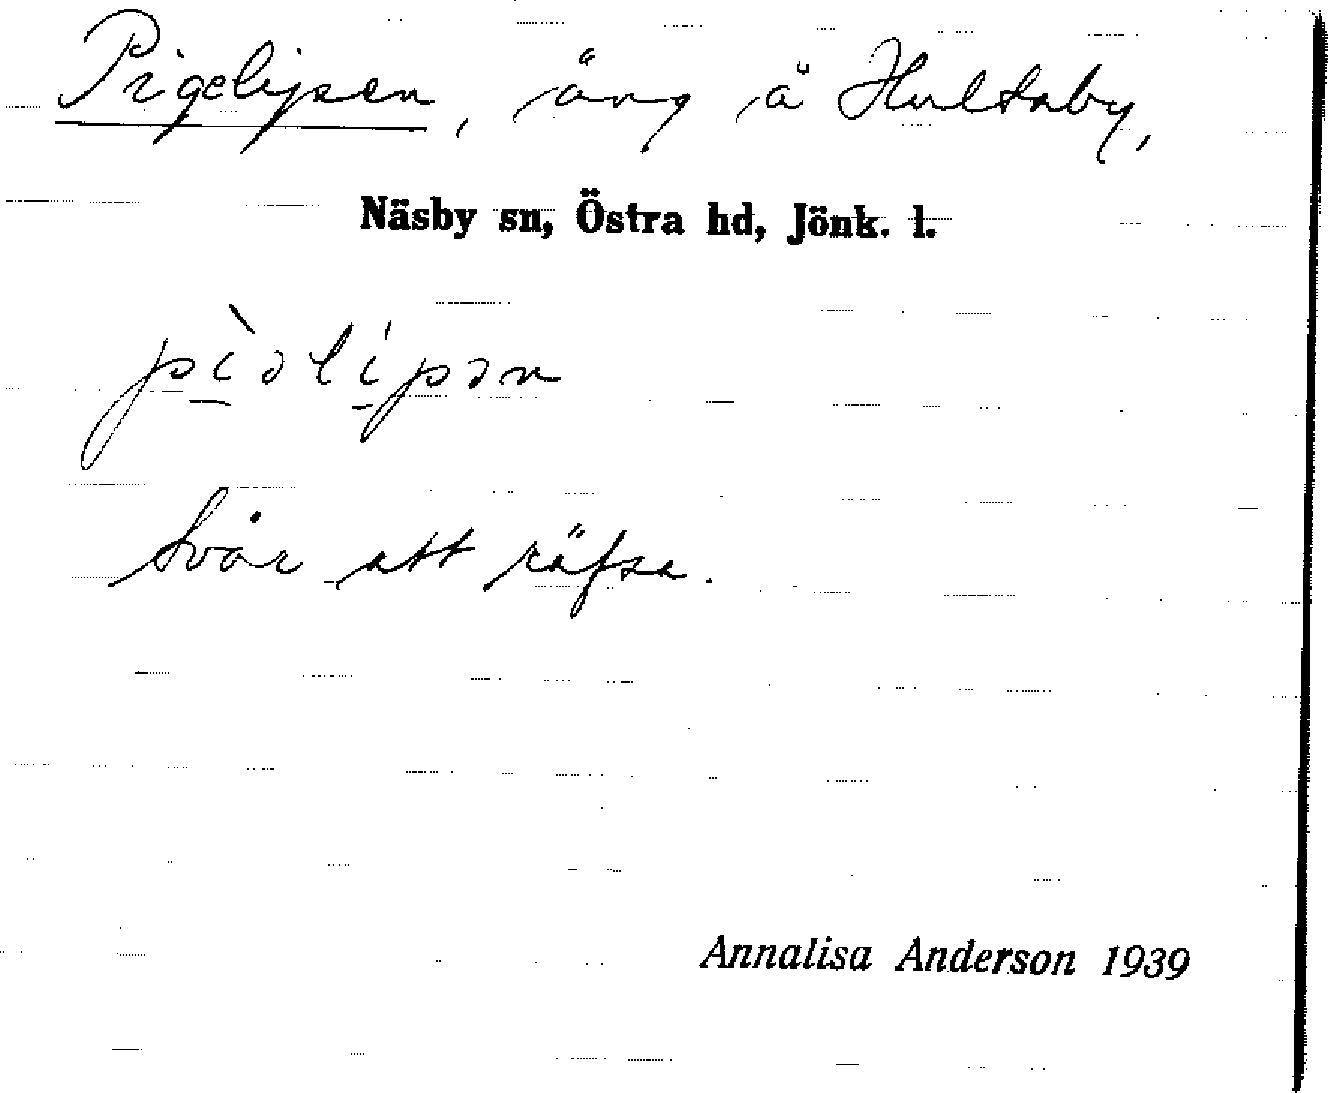 Pigelipen, äng å Hultsby,
Näsby sn, Östra hd, Jönk. l.
pìəlípən
Svår att räfsa.
Annalisa Anderson 1939